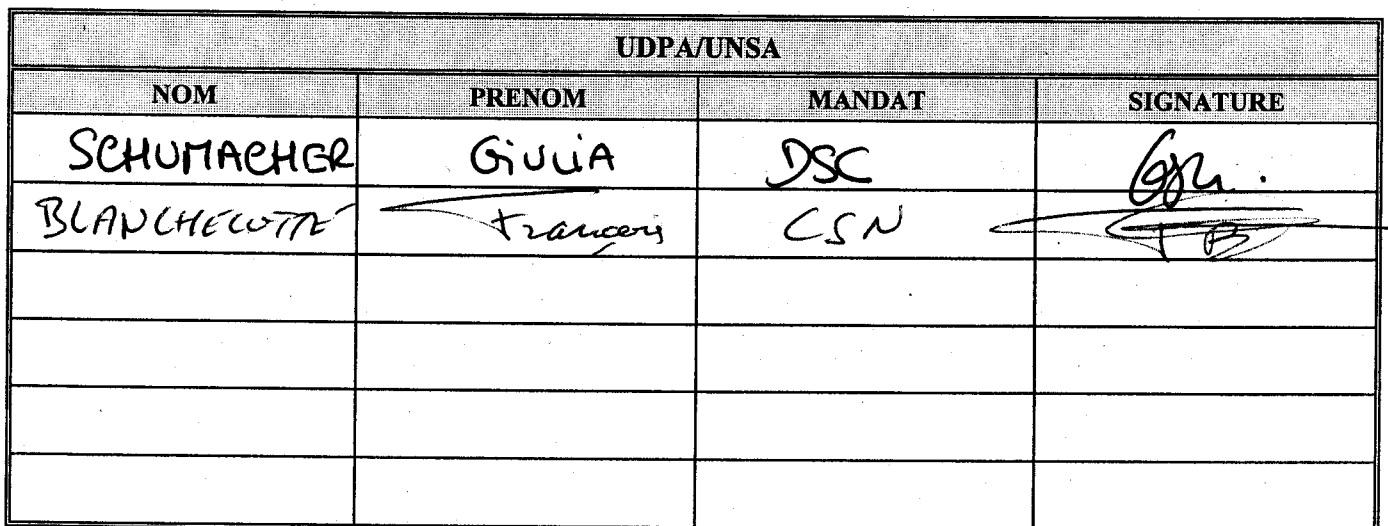 UDPA/UNSA
NOM PRENOM MANDAT SIGNATURE
SCHUMACHER GiULiA DSC
BLANCHECOTTE François CSN